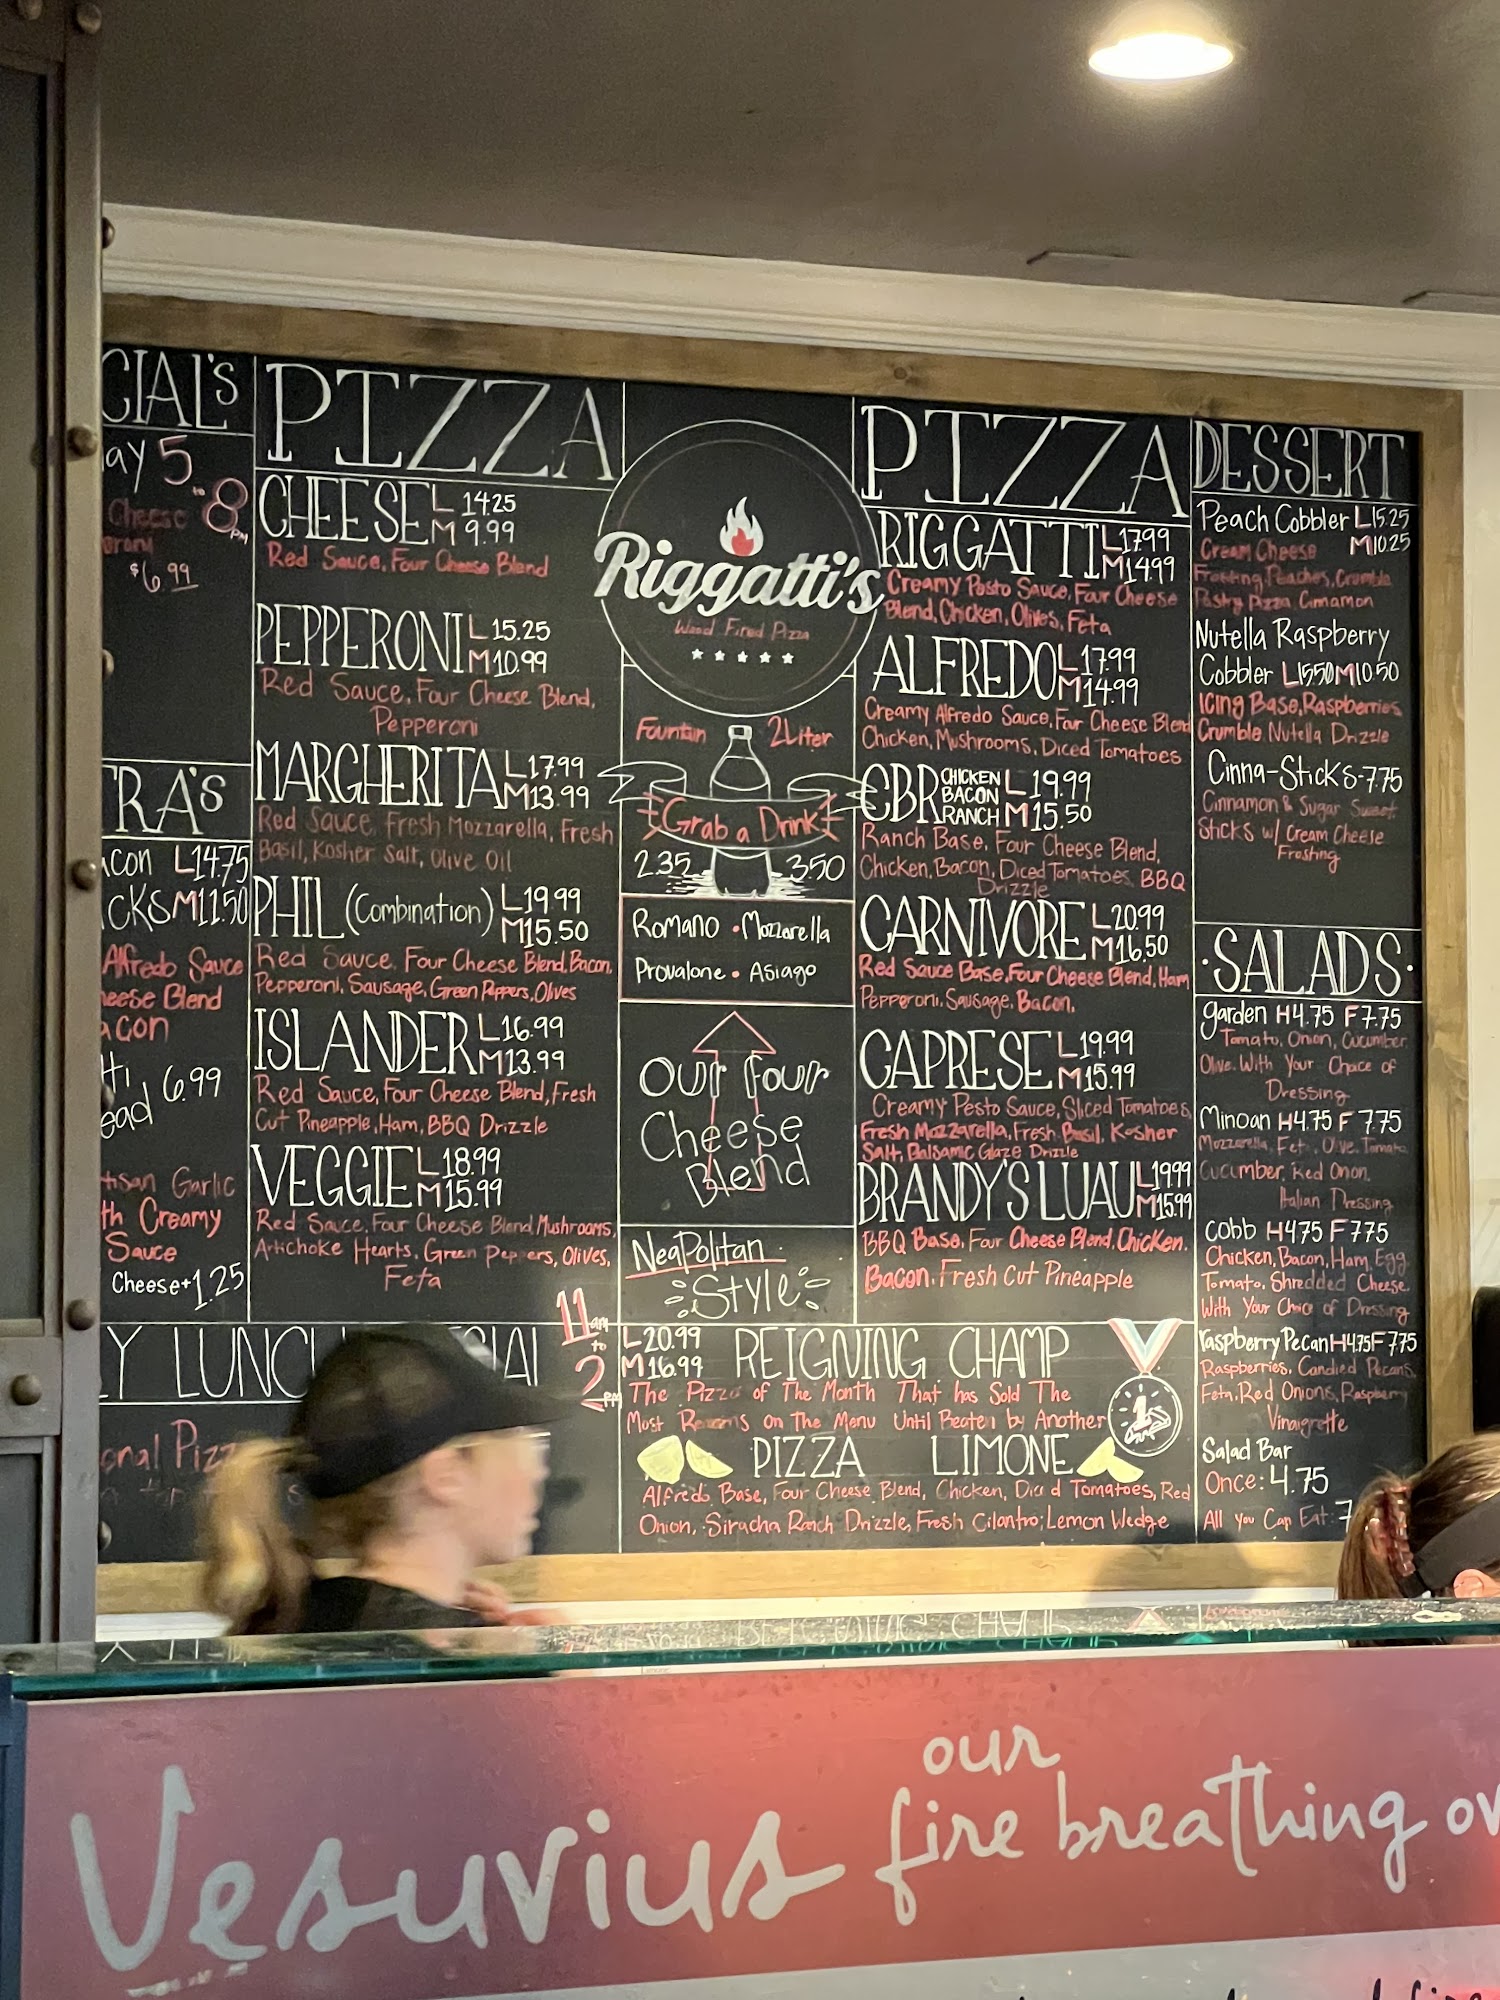 CIAL'S
ay 5 to 8 PM
Cheese
$6.99
RA'S
con L14.75
CKS M11.50
Alfredo Sauce
heese Blend
acon
ead 6.99
san Garlic
th Creamy
Sauce
Cheese+1.25
PIZZA
CHEESE L 14.25
M 9.99
Red Sauce, Four Cheese Blend
PEPPERONI L 15.25
M 10.99
Red Sauce, Four Cheese Blend,
Pepperoni
MARGHERITA L 17.99
M 13.99
Red Sauce, Fresh Mozzarella, Fresh
Basil, Kosher Salt, Olive Oil
PHIL (Combination) L 19.99
M 15.50
Red Sauce, Four Cheese Blend, Bacon,
Pepperoni, Sausage, Green Peppers, Olives
ISLANDER L 16.99
M 13.99
Red Sauce, Four Cheese Blend, Fresh
Cut Pineapple, Ham, BBQ Drizzle
VEGGIE L 18.99
M 15.99
Red Sauce, Four Cheese Blend, Mushrooms,
Artichoke Hearts, Green Peppers, Olives,
Feta
Y LUNC CIAL 11am to 2PM
onal Pizz
Riggatti's
Wood Fired Pizza
Fountain 2Liter
Grab a Drink
2.35 3.50
Romano • Mozzarella
Provalone • Asiago
Our Four
Cheese
Blend
Neapolitan
Style
PIZZA
RIGGATTI L 17.99
M 14.99
Creamy Pesto Sauce, Four Cheese
Blend, Chicken, Olives, Feta
ALFREDO L 17.99
M 14.99
Creamy Alfredo Sauce, Four Cheese Blend
Chicken, Mushrooms, Diced Tomatoes
CBR CHICKEN BACON RANCH L 19.99
M 15.50
Ranch Base, Four Cheese Blend,
Chicken, Bacon, Diced Tomatoes, BBQ
Drizzle
CARNIVORE L 20.99
M 16.50
Red Sauce Base, Four Cheese Blend, Ham
Pepperoni, Sausage, Bacon,
CAPRESE L 19.99
M 15.99
Creamy Pesto Sauce, Sliced Tomatoes,
Fresh Mozzarella, Fresh Basil, Kosher
Salt, Balsamic Glaze Drizzle
BRANDY'S LUAU L 19.99
M 15.99
BBQ Base, Four Cheese Blend, Chicken,
Bacon, Fresh Cut Pineapple
L 20.99
M 16.99
REIGNING CHAMP
The Pizza of The Month That has Sold The
Most Remains on The Menu Until Beaten by Another
1st
PIZZA LIMONE
Alfredo Base, Four Cheese Blend, Chicken, Diced Tomatoes, Red
Onion, Siracha Ranch Drizzle, Fresh Cilantro, Lemon Wedge
DESSERT
Peach Cobbler L15.25
M10.25
Cream Cheese
Frosting, Peaches, Crumble
Pastry Pizza Cinnamon
Nutella Raspberry
Cobbler L15.50 M10.50
Icing Base, Raspberries
Crumble, Nutella Drizzle
Cinna-Sticks-7.75
Cinnamon & Sugar Sweet
Sticks w/ Cream Cheese
Frosting
SALADS
garden H4.75 F7.75
Tomato, Onion, Cucumber,
Olive. With Your Choice of
Dressing
Minoan H4.75 F 7.75
Mozzarella, Feta, Olive, Tomato
Cucumber, Red Onion,
Italian Dressing
Cobb H4.75 F7.75
Chicken, Bacon, Ham, Egg
Tomato, Shredded Cheese
With Your Choice of Dressing
raspberry Pecan H4.75 F 7.75
Raspberries, Candied Pecans,
Feta, Red Onions, Raspberry
Vinaigrette
Salad Bar
Once: 4.75
All You Can Eat: 7
Vesuvius our
fire breathing ov